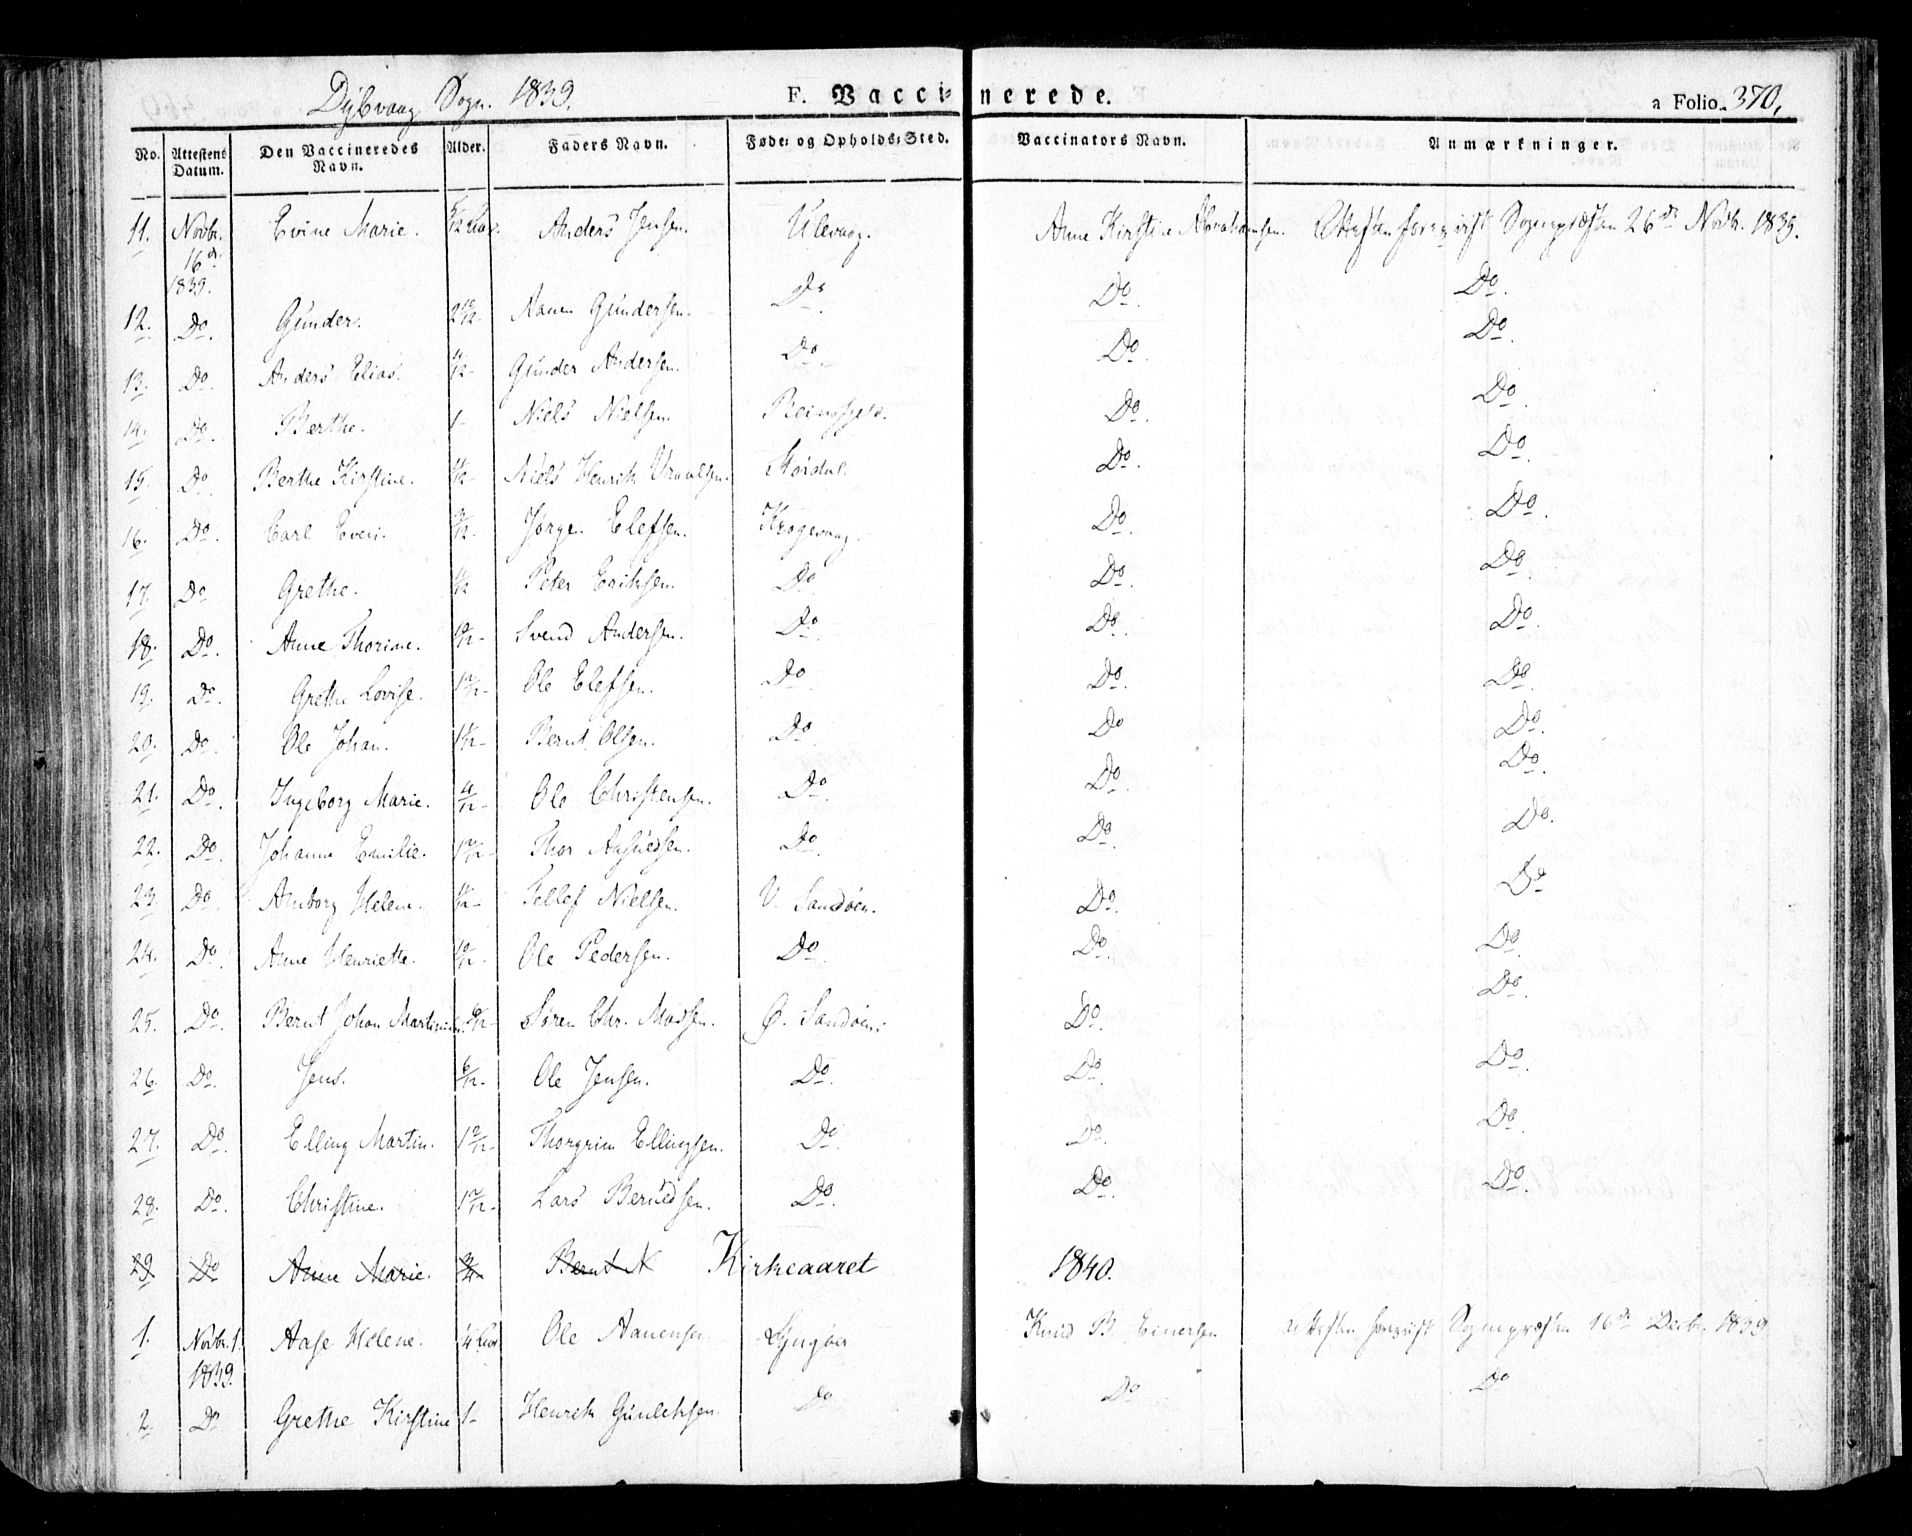 Dybvaag Sogn. 1839. F. Vaccinerede. a Folio. 370,
No. Attestens Datum. Den Vaccineredes Navn. Alder. Faders Navn. Føde- og Opholds-Sted. Vaccinators Navn. Anmærkninger.
11. Novbr. 16de 1839. Evine Marie. Anders Jensen. Ulevaag. Anne Kirstine Abrahamsen. Attesten foreviist Sognepræsten 26de Novbr. 1839.
12. Do. Gunder. 2 10/12 Gundersen. Do Do. Do.
13. Do. Anders Elias. Gunder Andersen. Do. Do. Do.
14. Do. Berthe. 1- Niels Nielsen. Do. Do.
15. Do. Berthe Kirstine. Niels Henrik Do. Do.
16. Do. Carl Jørgen Elefsen. Krogevaag. Do. Do.
17. Do Grethe. Peter Eriksen. Do Do. Do.
18. Do. Anne Thorine. 10/12- Svend Andersen. Do Do. Do.
19. Do. Grethe Lovise. Ole Elefsen. Do Do. Do.
20. Do. Ole Johan. Bernt Olsen. Do Do Do.
21. Do. Ingeborg Marie. Ole Christensen. Do. Do. Do.
22. Do. Johanne Emilie. Thor Do. Do. Do.
23. Do. Anborg Helene. Tellef Nielsen. V. Sandøen. Do. Do
24. Do. Anne Henriette. 10/12- Ole Pedersen. Do. Do. Do.
25. Do. Bernt Johan Søren Chr. Madsen. Ø. Sandøen. Do. Do.
26. Do. Jens. Ole Jensen. Do. Do. Do.
27. Do. Elling Martin. Thorgrim Ellingsen. Do. Do. Do.
28. Do. Christine. Lars Do. Do. Do.
29 Do Anne Marie. 3/4 Bernt N Kirkeaaret 1840.
1. Novbr. 1. 1839. Aase Helene. Ole Aanensen Lyngøer Knud B. Einersen Attesten foreviist Sognepræsten 16de Decbr. 1839
2. Do Grethe Kirstine 1- Henrik Do Do Do